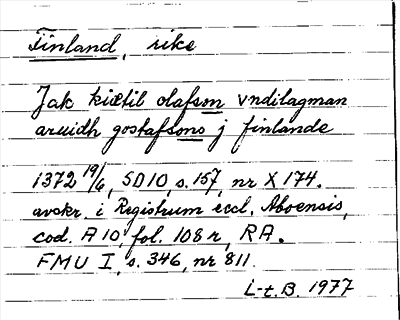 Finland, rike
Jak kiætil olafson vndilagman
aruidh gostafsons j finlande
1372 19/6, SD10, s. 157, nr X 174.
avskr. i Registrum eccl. Aboensis,
cod. A 10, fol. 108 r, RA.
FMU I, s. 346, nr 811.
L-t. B. 1977